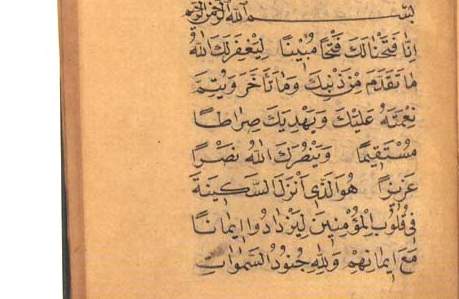 بِسْمِ اللهِ الرَّحْمٰنِ الرَّحِيمِ
اِنَّا فَتَحْنَا لَكَ فَتْحًا مُبِينًا لِيَغْفِرَ لَكَ اللهُ
مَا تَقَدَّمَ مِنْ ذَنْبِكَ وَمَا تَأَخَّرَ وَيُتِمَّ
نِعْمَتَهُ عَلَيْكَ وَيَهْدِيَكَ صِرَاطًا
مُسْتَقِيمًا وَيَنْصُرَكَ اللهُ نَصْرًا
عَزِيزًا هُوَ الَّذِى اَنْزَلَ السَّكِينَةَ
فِى قُلُوبِ الْمُؤْمِنِينَ لِيَزْدَادُوا اِيمَانًا
مَعَ اِيمَانِهِمْ وَلِلّٰهِ جُنُودُ السَّمٰوَاتِ